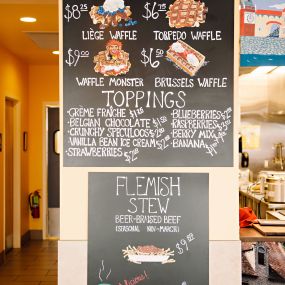 $8.25 $6.75
LIÈGE WAFFLE TORPEDO WAFFLE
$9.00 $6.50
WAFFLE MONSTER BRUSSELS WAFFLE
TOPPINGS
·CRÈME FRAÎCHE $1.50
·BELGIAN CHOCOLATE $1.50
·CRUNCHY SPECULOOS $2
·VANILLA BEAN ICE CREAM $2
·STRAWBERRIES $2
·BLUEBERRIES $2
·RASPBERRIES
·BERRY MIX
·BANANA
FLEMISH
STEW
BEER-BRAISED BEEF
(SEASONAL NOV-MARCH)
$9.00